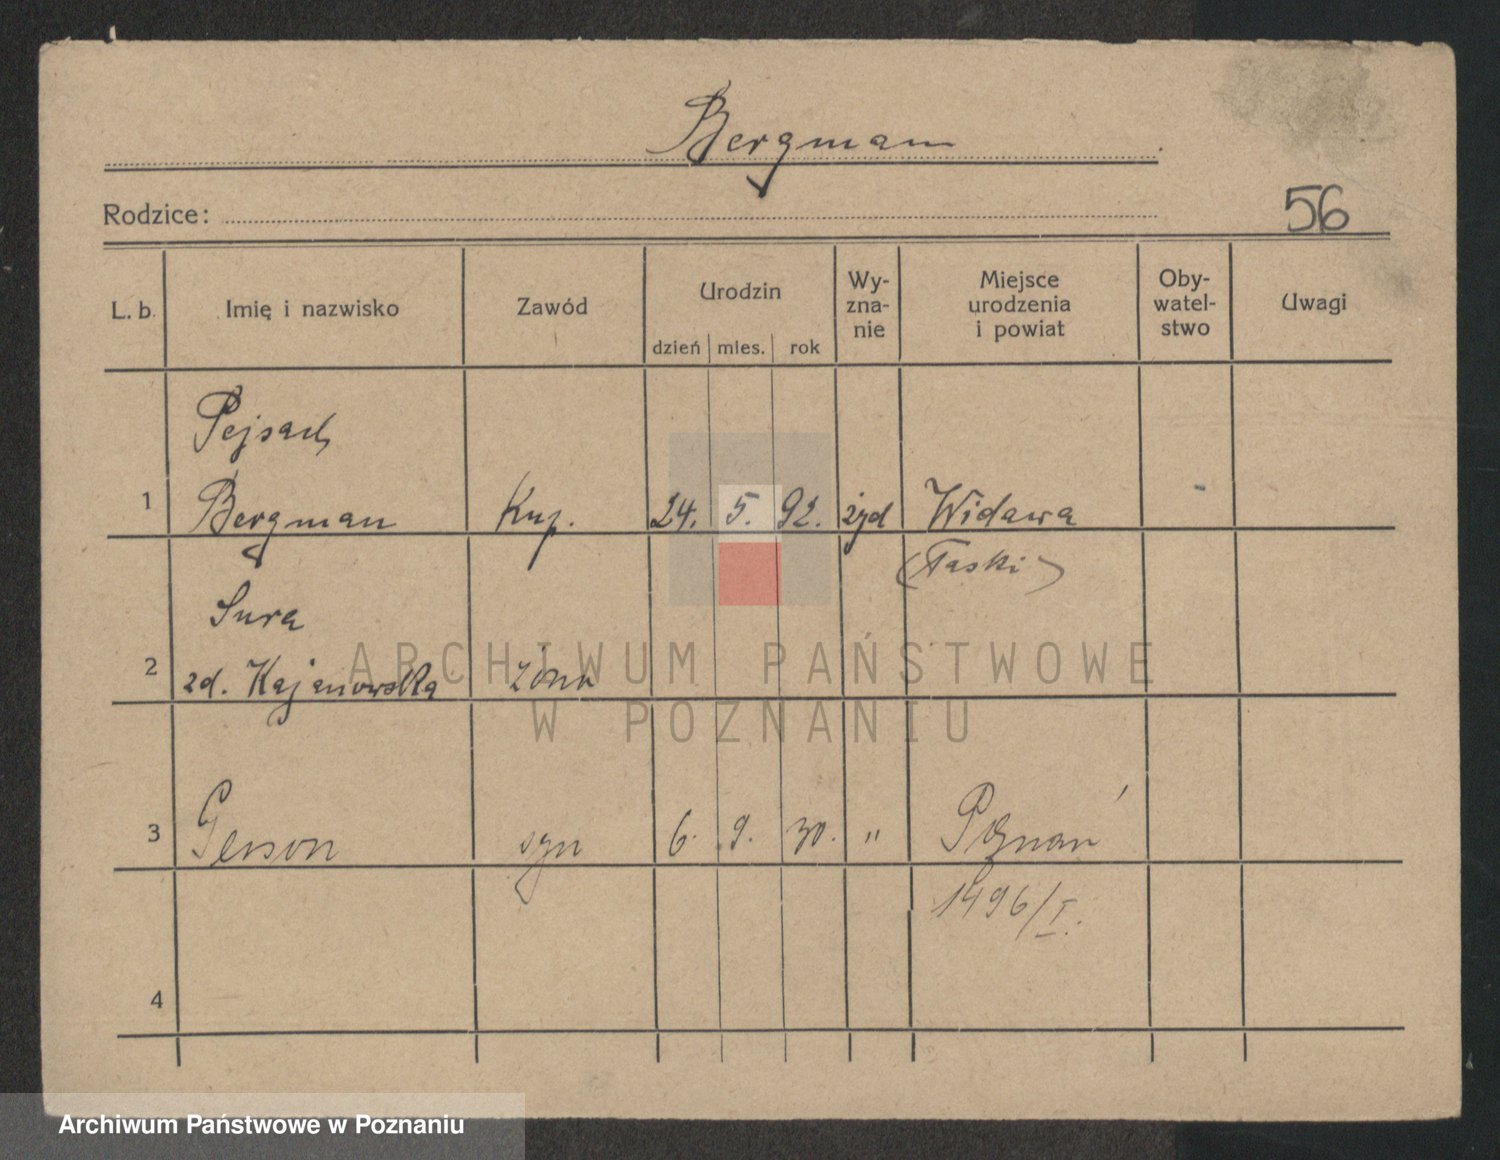 Bergman
Rodzice:
56
L. b. Imię i nazwisko Zawód Urodzin dzień mies. rok Wy-znanie Miejsce urodzenia i powiat Oby-watel-stwo Uwagi
Pejsach
1 Bergman Kup. 24. 5. 92. żyd Widawa
(Łaski)
Sura
2 zd. Kajanowska żona
3 Gerson syn 6. 9. 30. " Poznań
1496/I.
4
ARCHIWUM PAŃSTWOWE
W POZNANIU
Archiwum Państwowe w Poznaniu